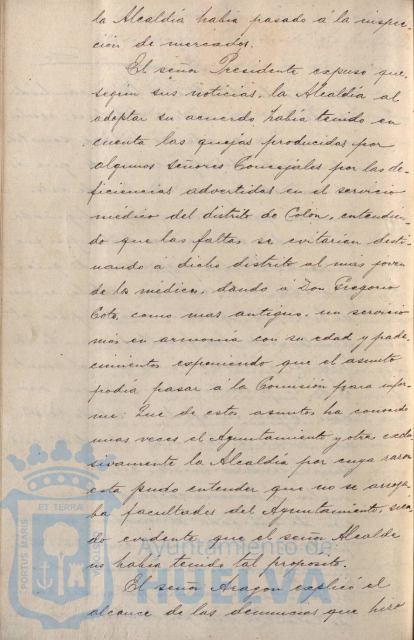 la Alcaldía había pasado á la inspec-
ción de mercados.
El señor Presidente expuso que,
según sus noticias, la Alcaldía al
adoptar su acuerdo había tenido en
cuenta las quejas producidas por
algunos señores Concejales por las de-
ficiencias advertidas en el servicio
médico del distrito de Colón, entendien-
do que las faltas se evitarían desti-
nando á dicho distrito al más joven
de los médicos, dando á Don Gregorio
Coto, como mas antiguo, un servicio
más en armonía con su edad y pade-
cimientos exponiendo que el asunto
podía pasar á la Comisión para infor-
me: Que de estos asuntos ha conocido
unas veces el Ayuntamiento y otras exclu-
sivamente la Alcaldía por cuya razón
esta pudo entender que no se arroga-
ba facultades del Ayuntamiento, sien-
do evidente que el señor Alcalde
no había tenido tal propósito.
El señor Aragón explicó el
alcance de las denuncias que hizo
PORTUS MARIS ET TERRAE
Ayuntamiento de
HUELVA